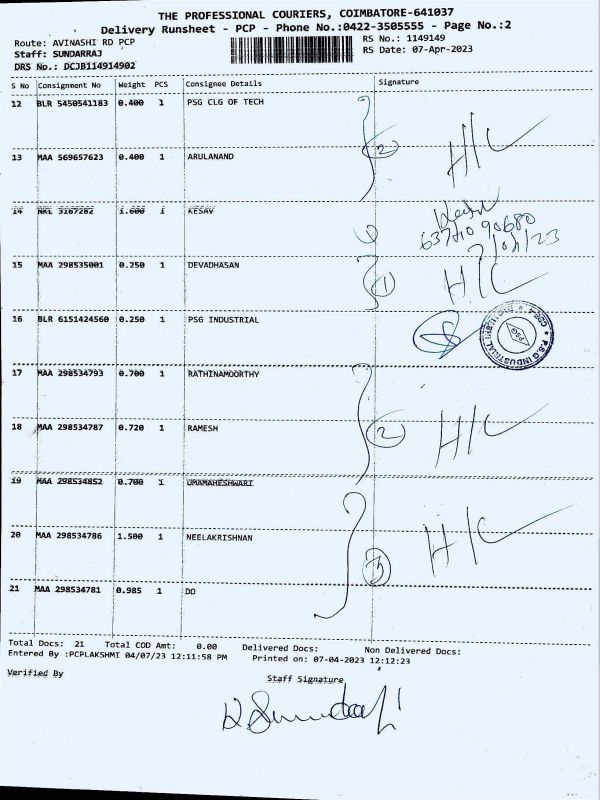 THE PROFESSIONAL COURIERS, COIMBATORE-641037
Delivery Runsheet - PCP - Phone No.:0422-3505555 - Page No.:2
Route: AVINASHI RD PCP RS No.: 1149149
Staff: SUNDARRAJ RS Date: 07-Apr-2023
DRS No.: DCJB114914902
S No Consignment No Weight PCS Consignee Details Signature
12 BLR 5450541183 0.400 1 PSG CLG OF TECH
2 H/C
13 MAA 569657623 0.400 1 ARULANAND
14 NKL 3167282 1.600 1 KESAV
15 MAA 298535001 0.250 1 DEVADHASAN
1 H/C
16 BLR 6151424560 0.250 1 PSG INDUSTRIAL
P.S.G INDUSTRIAL INSTITUTE
PSG
17 MAA 298534793 0.700 1 RATHINAMOORTHY
18 MAA 298534787 0.720 1 RAMESH
2 H/C
19 MAA 298534852 0.700 1 UMAMAHESHWARI
20 MAA 298534786 1.500 1 NEELAKRISHNAN
3 H/C
21 MAA 298534781 0.985 1 DD
Total Docs: 21 Total COD Amt: 0.00 Delivered Docs: Non Delivered Docs:
Entered By :PCPLAKSHMI 04/07/23 12:11:58 PM Printed on: 07-04-2023 12:12:23
Verified By Staff Signature